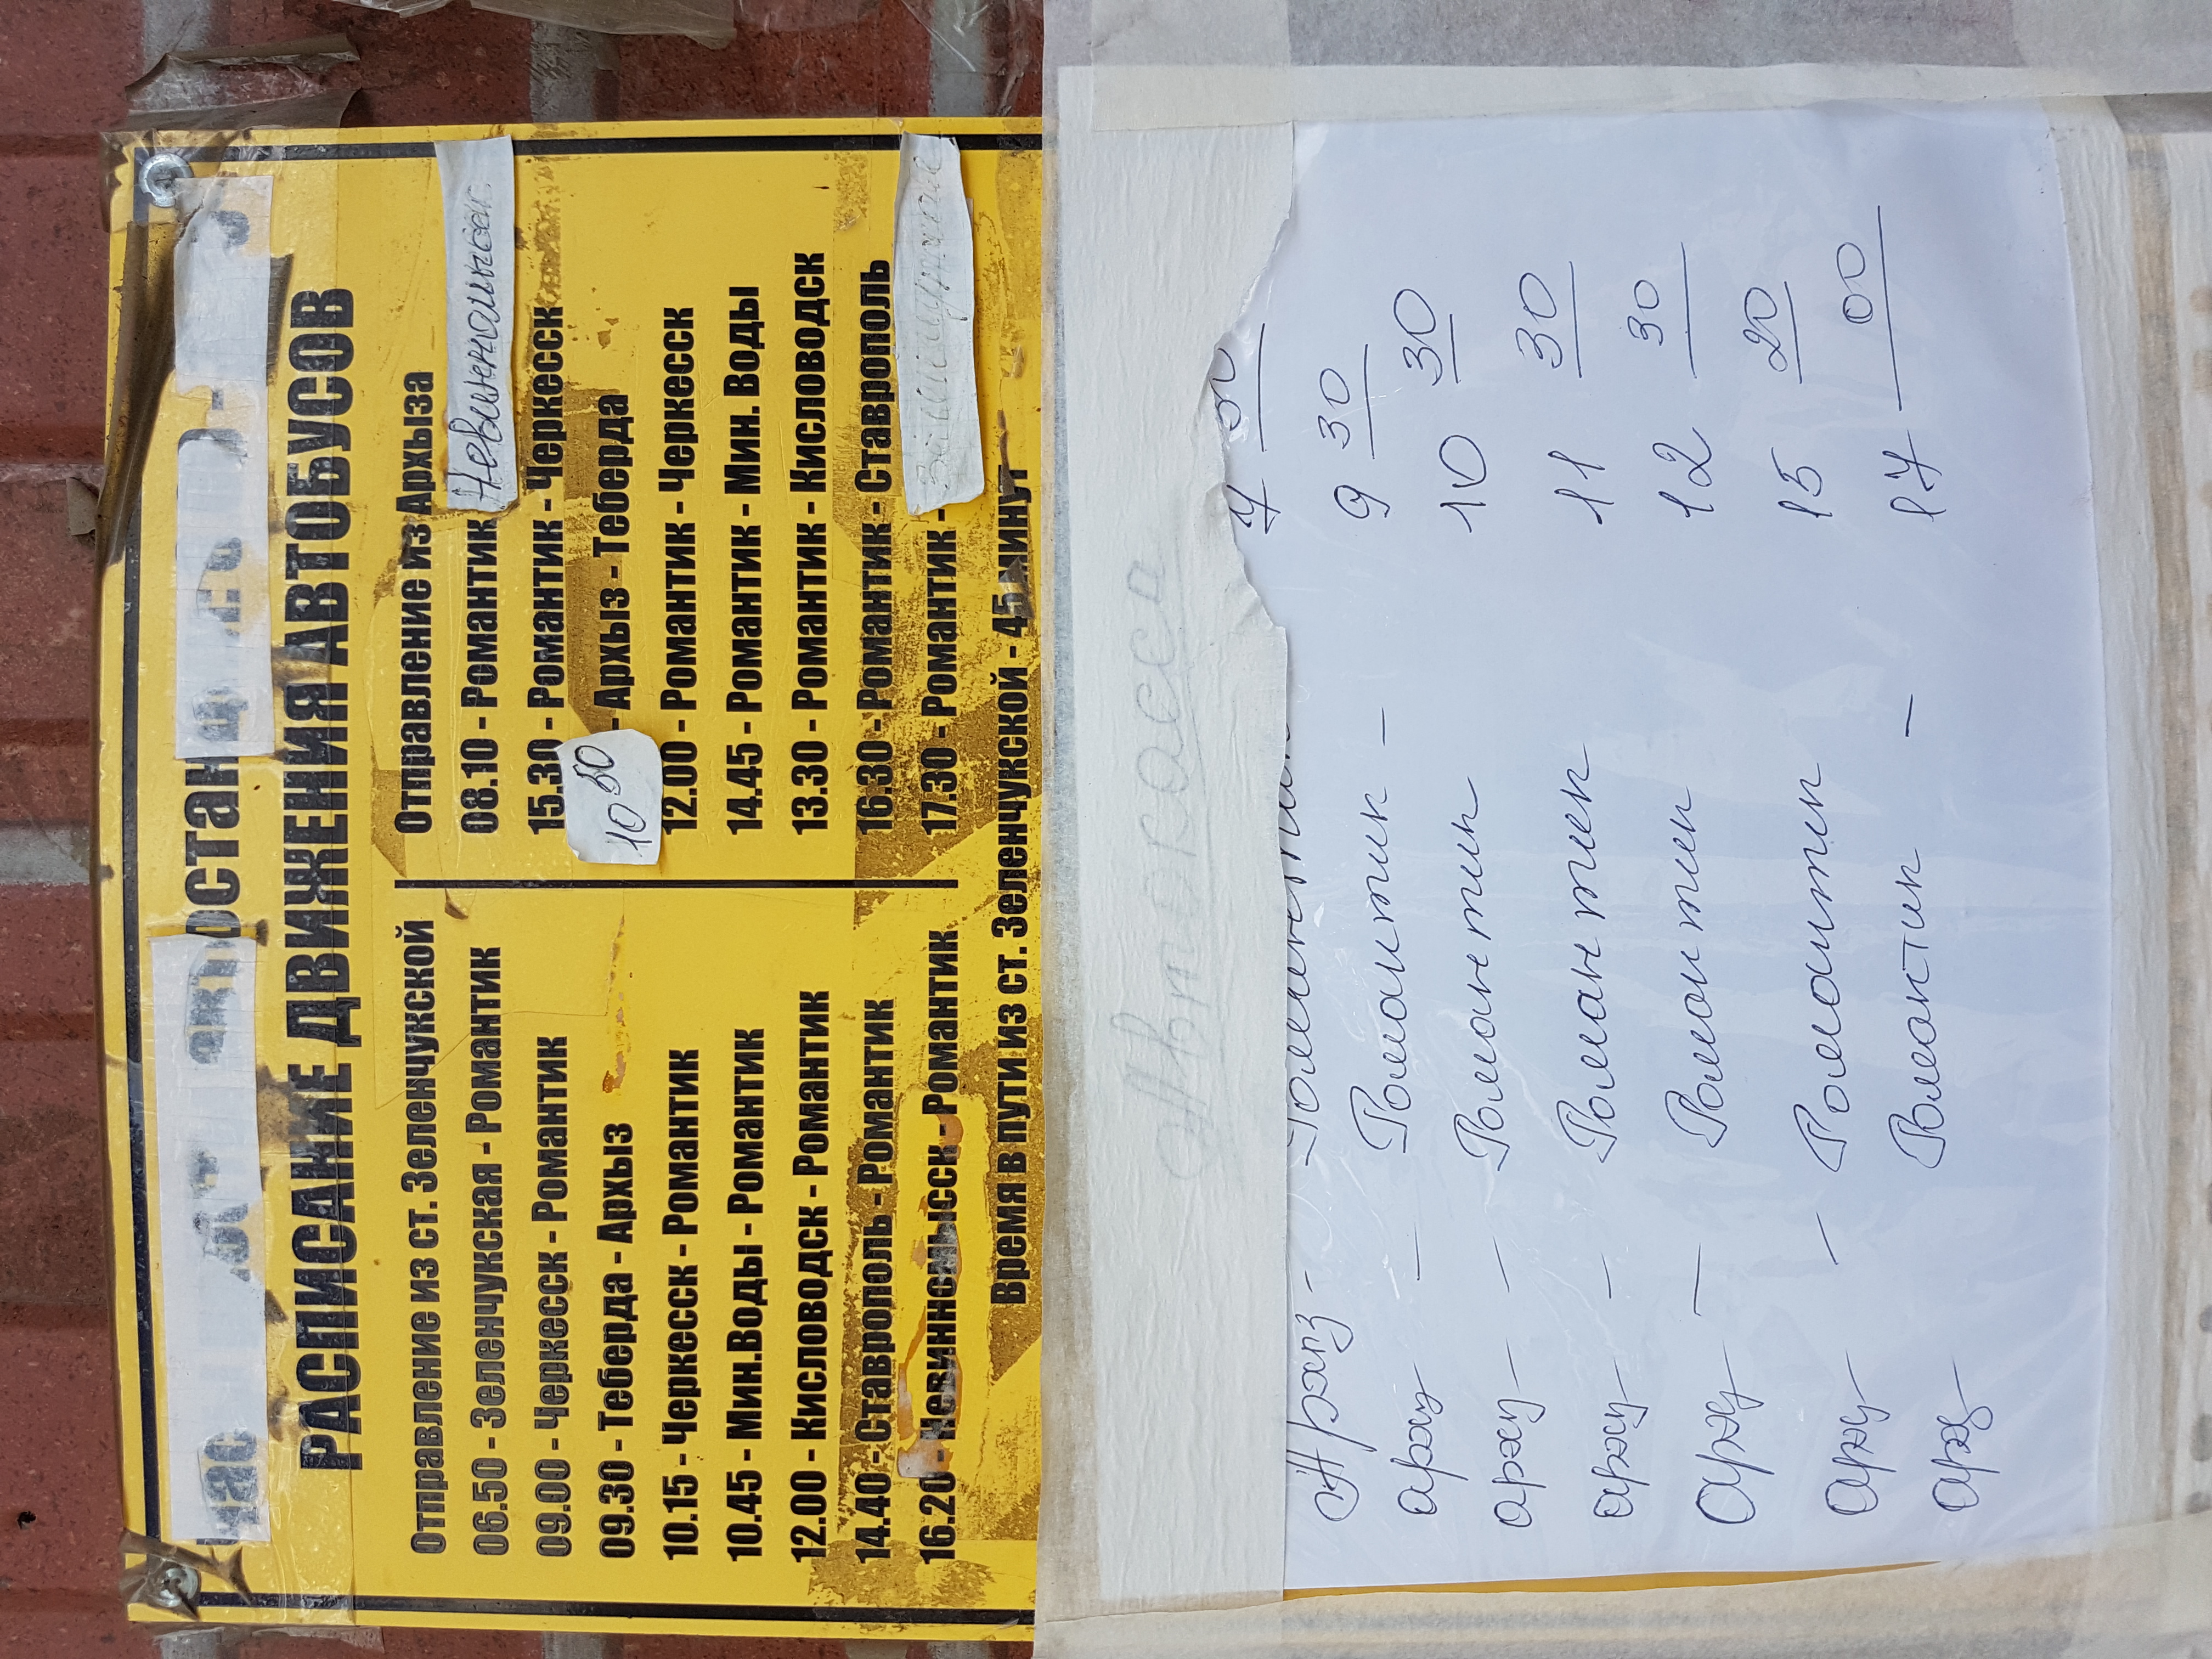 РАСПИСАНИЕ ДВИЖЕНИЯ АВТОБУСОВ
Отправление из ст. Зеленчукской
06.50 - Зеленчукская - Романтик
09.00 - Черкесск - Романтик
09.30 - Теберда - Архыз
10.15 - Черкесск - Романтик
10.45 - Мин.Воды - Романтик
12.00 - Кисловодск - Романтик
14.40 - Ставрополь - Романтик
16.20 - Невинномысск - Романтик
Отправление из Архыза
08.10 - Романтик
15.30 - Романтик - Черкесск
10 50 - Архыз - Теберда
12.00 - Романтик - Черкесск
14.45 - Романтик - Мин. Воды
13.30 - Романтик - Кисловодск
16.30 - Романтик - Ставрополь
17.30 - Романтик -
Время в пути из ст. Зеленчукской - 45 минут
Автокасса
Романтик - 9 30
Романтик 10 30
Романтик 11 30
Романтик 12 30
Романтик 15 20
Романтик - 17 00